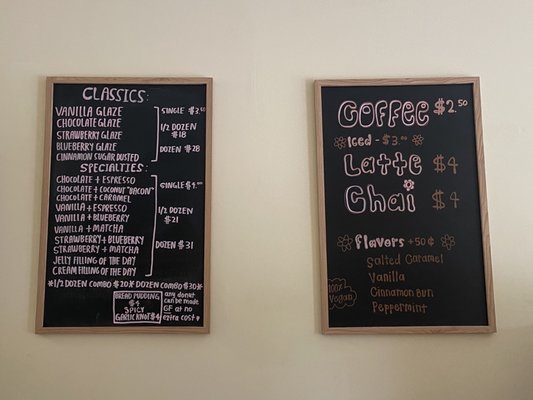 CLASSICS:
VANILLA GLAZE
CHOCOLATE GLAZE
STRAWBERRY GLAZE
BLUEBERRY GLAZE
CINNAMON SUGAR DUSTED
SINGLE $3.50
1/2 DOZEN
$18
DOZEN $28
SPECIALTIES:
CHOCOLATE + ESPRESSO
CHOCOLATE + COCONUT "BACON"
CHOCOLATE + CARAMEL
VANILLA + ESPRESSO
VANILLA + BLUEBERRY
VANILLA + MATCHA
STRAWBERRY + BLUEBERRY
STRAWBERRY + MATCHA
JELLY FILLING OF THE DAY
CREAM FILLING OF THE DAY
SINGLE $4.00
1/2 DOZEN
$21
DOZEN $31
*1/2 DOZEN COMBO $20* DOZEN COMBO $30*
BREAD PUDDING
$4
SPICY
GARLIC KNOT $4
any donut
can be made
GF at no
extra cost!
Coffee $2.50
Iced - $3.00
Latte $4
Chai $4
Flavors +50¢
Salted Caramel
Vanilla
Cinnamon Bun
Peppermint
100%
Vegan